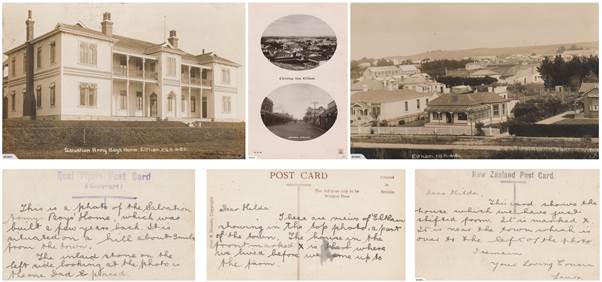 Salvation Army Boys Home. Eltham
Eltham
Real Photo Post Card
(Copyright)
This is a photo of the Salvation
Army Boys' Home, which was
built a few years back. It is
situated on a hill about
from the town.
The inlaid stone on the
left side looking at the photo is
the one Dad placed.
POST CARD
The Address only to be
Written Here
Dear Hilda.
These are views of Eltham
showing in the top photo, a part
of the town. The house in the
front marked X is that where
we lived before we came up to
the farm.
New Zealand Post Card.
Dear Hilda.
This card shows the
house which we have just
shifted from. It is marked X.
It is near the town which is
over to the left of the photo
I remain
Your Loving Cousin
Laura